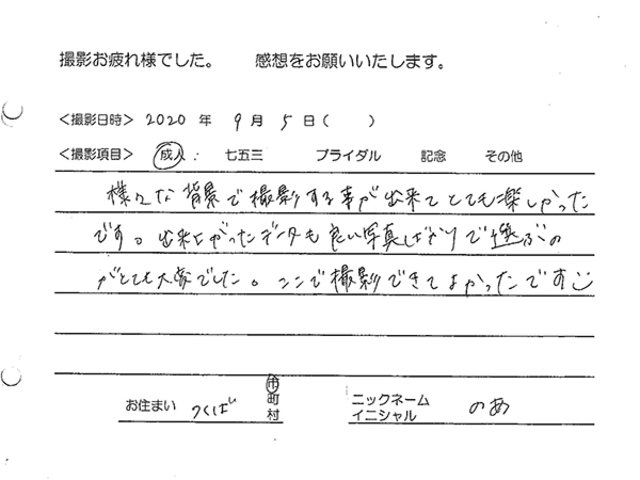 撮影お疲れ様でした。 感想をお願いいたします。
<撮影日時> 2020 年 9 月 5 日 ( )
<撮影項目> 成人 : 七五三 ブライダル 記念 その他
様々な背景で撮影する事が出来てとても楽しかった
です。出来上がったデータも良い写真ばかりで選ぶの
がとても大変でした。ここで撮影できてよかったです
お住まい つくば 市 町 村
ニックネーム イニシャル のあ